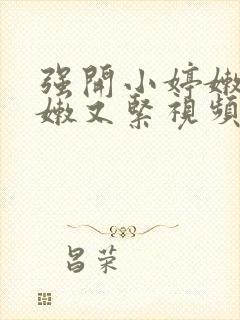 强開小婷嫩
嫩又緊視頻
昌荣